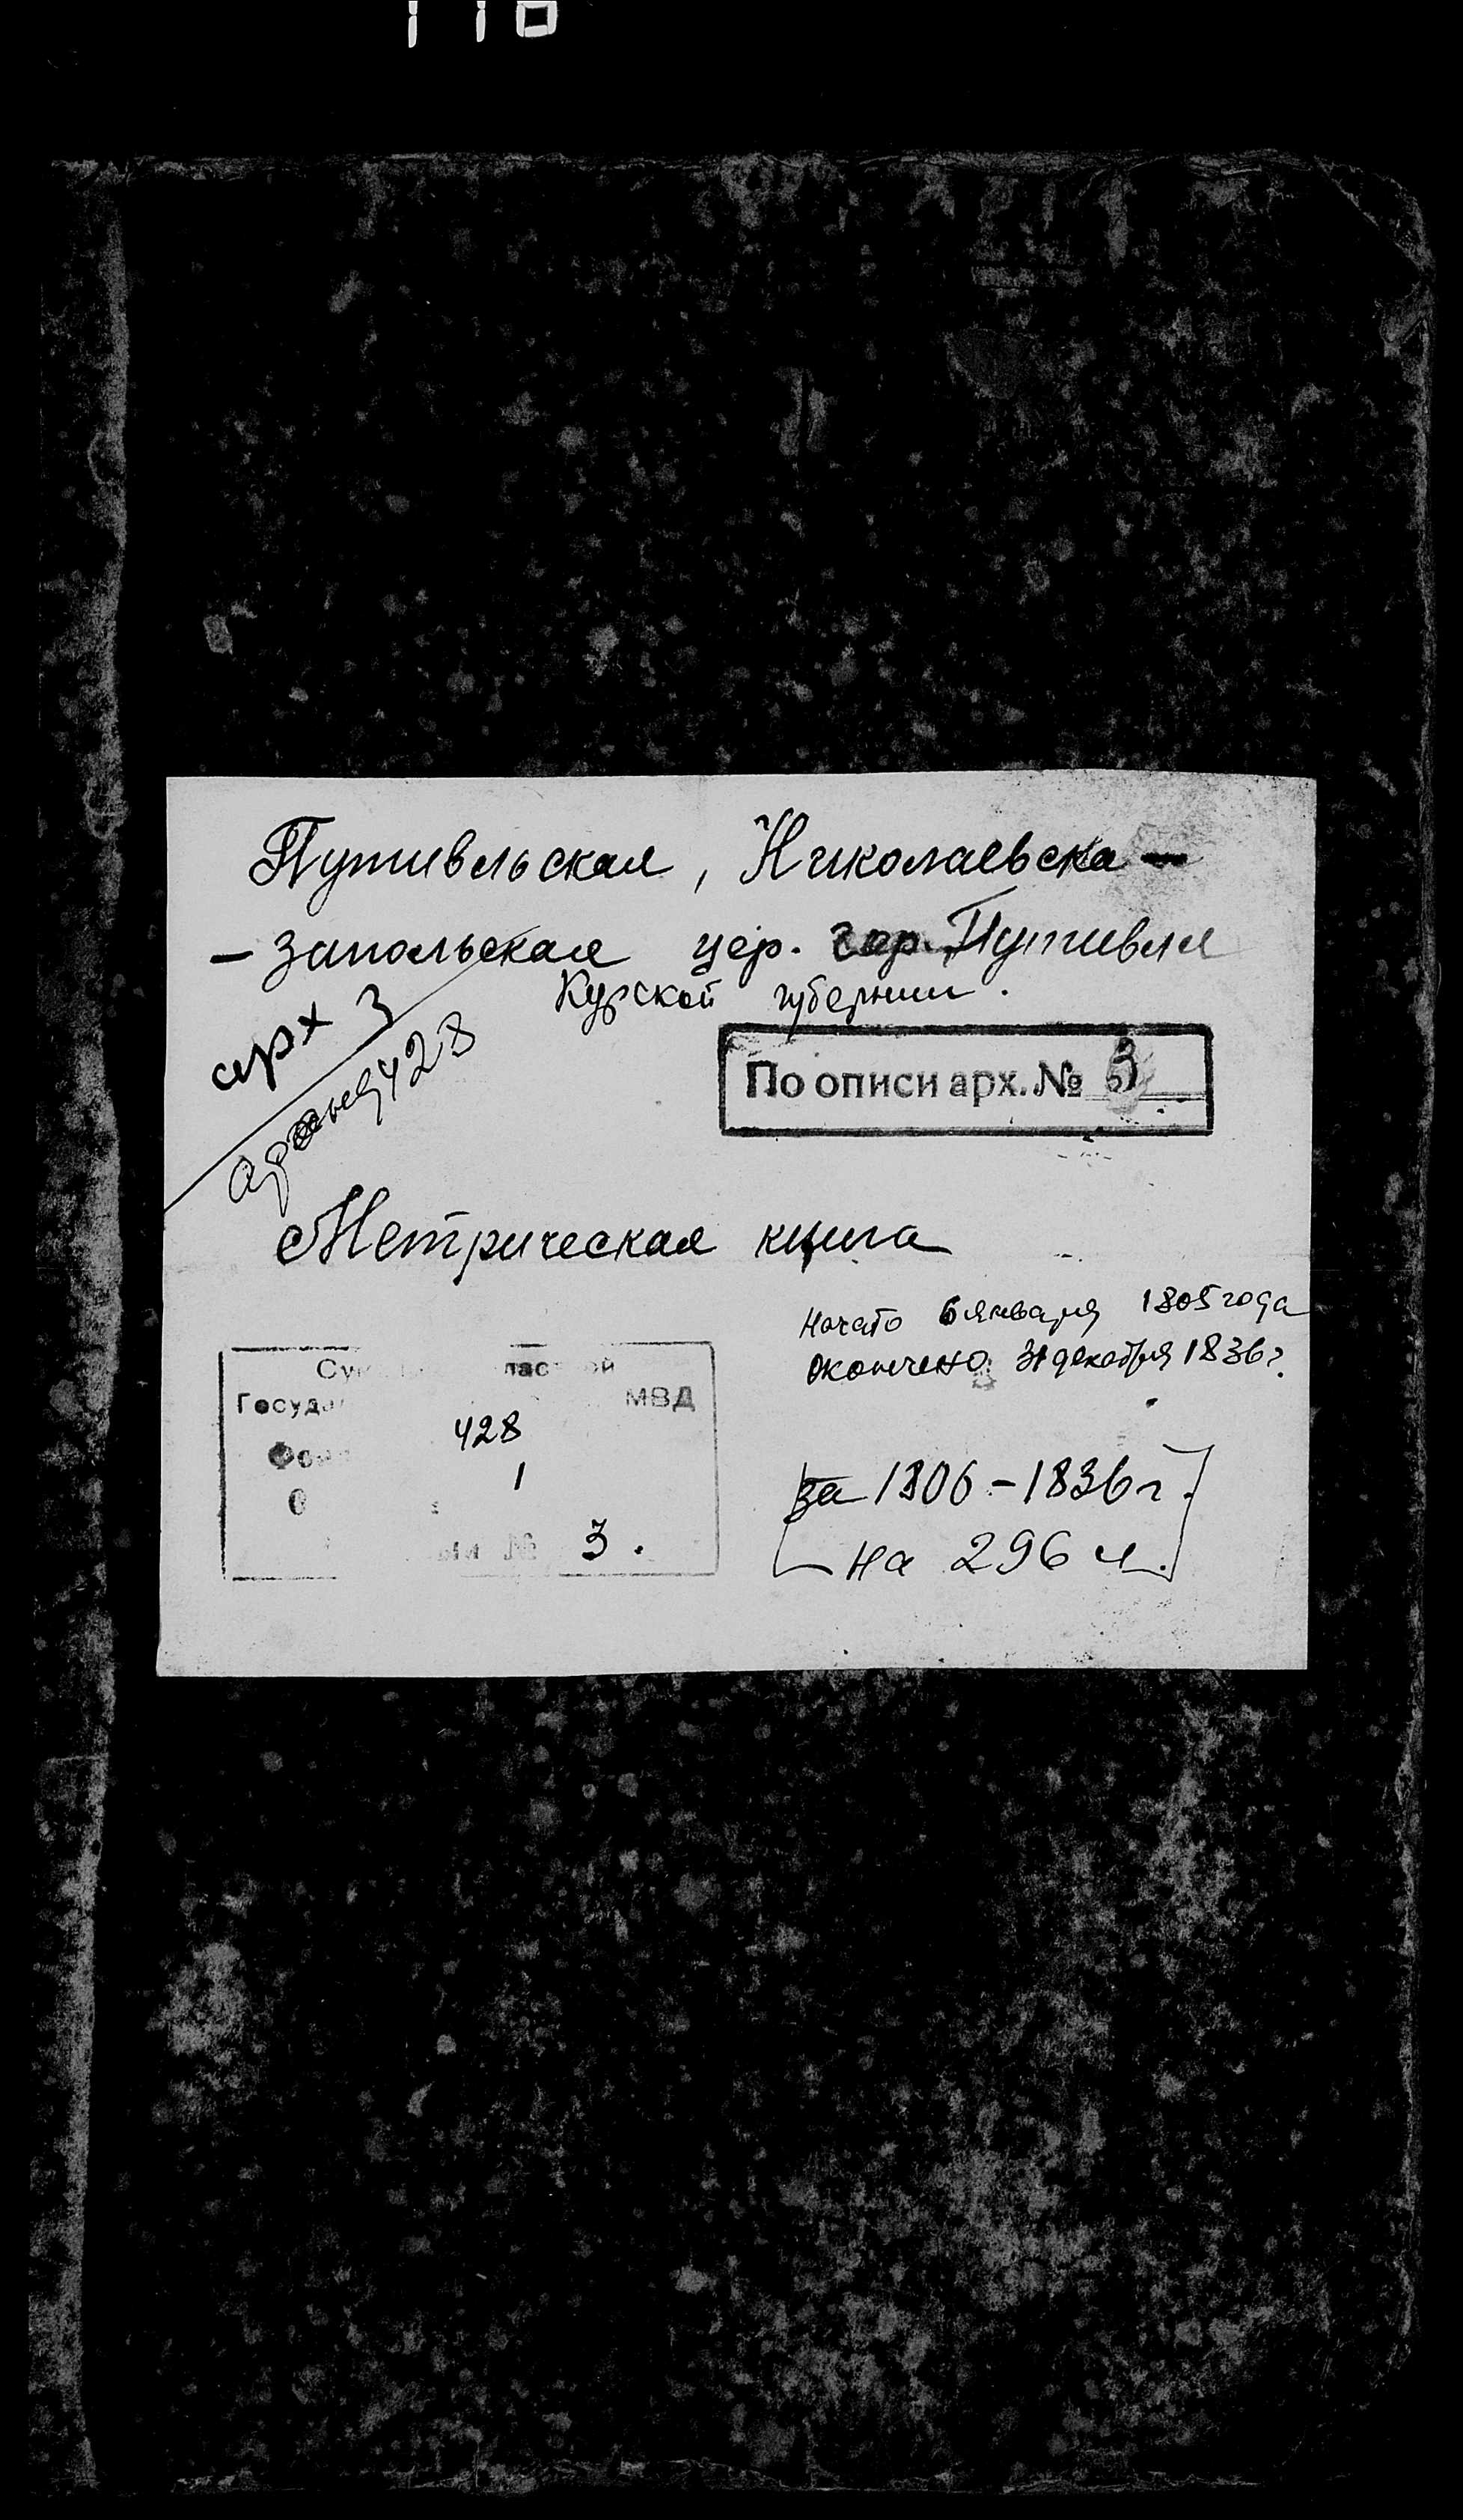 Путивльская, Николаевска-
- Запольская цер. гор. Путивля
Курской губернии.
арх 3
арфонд 428
По описи арх. № 3
Метрическая книга
Начато 6 января 1805 года
Окончено 31 декабря 1836 г.
МВД
428
1
3.
за 1806-1836 г.
на 296 л.